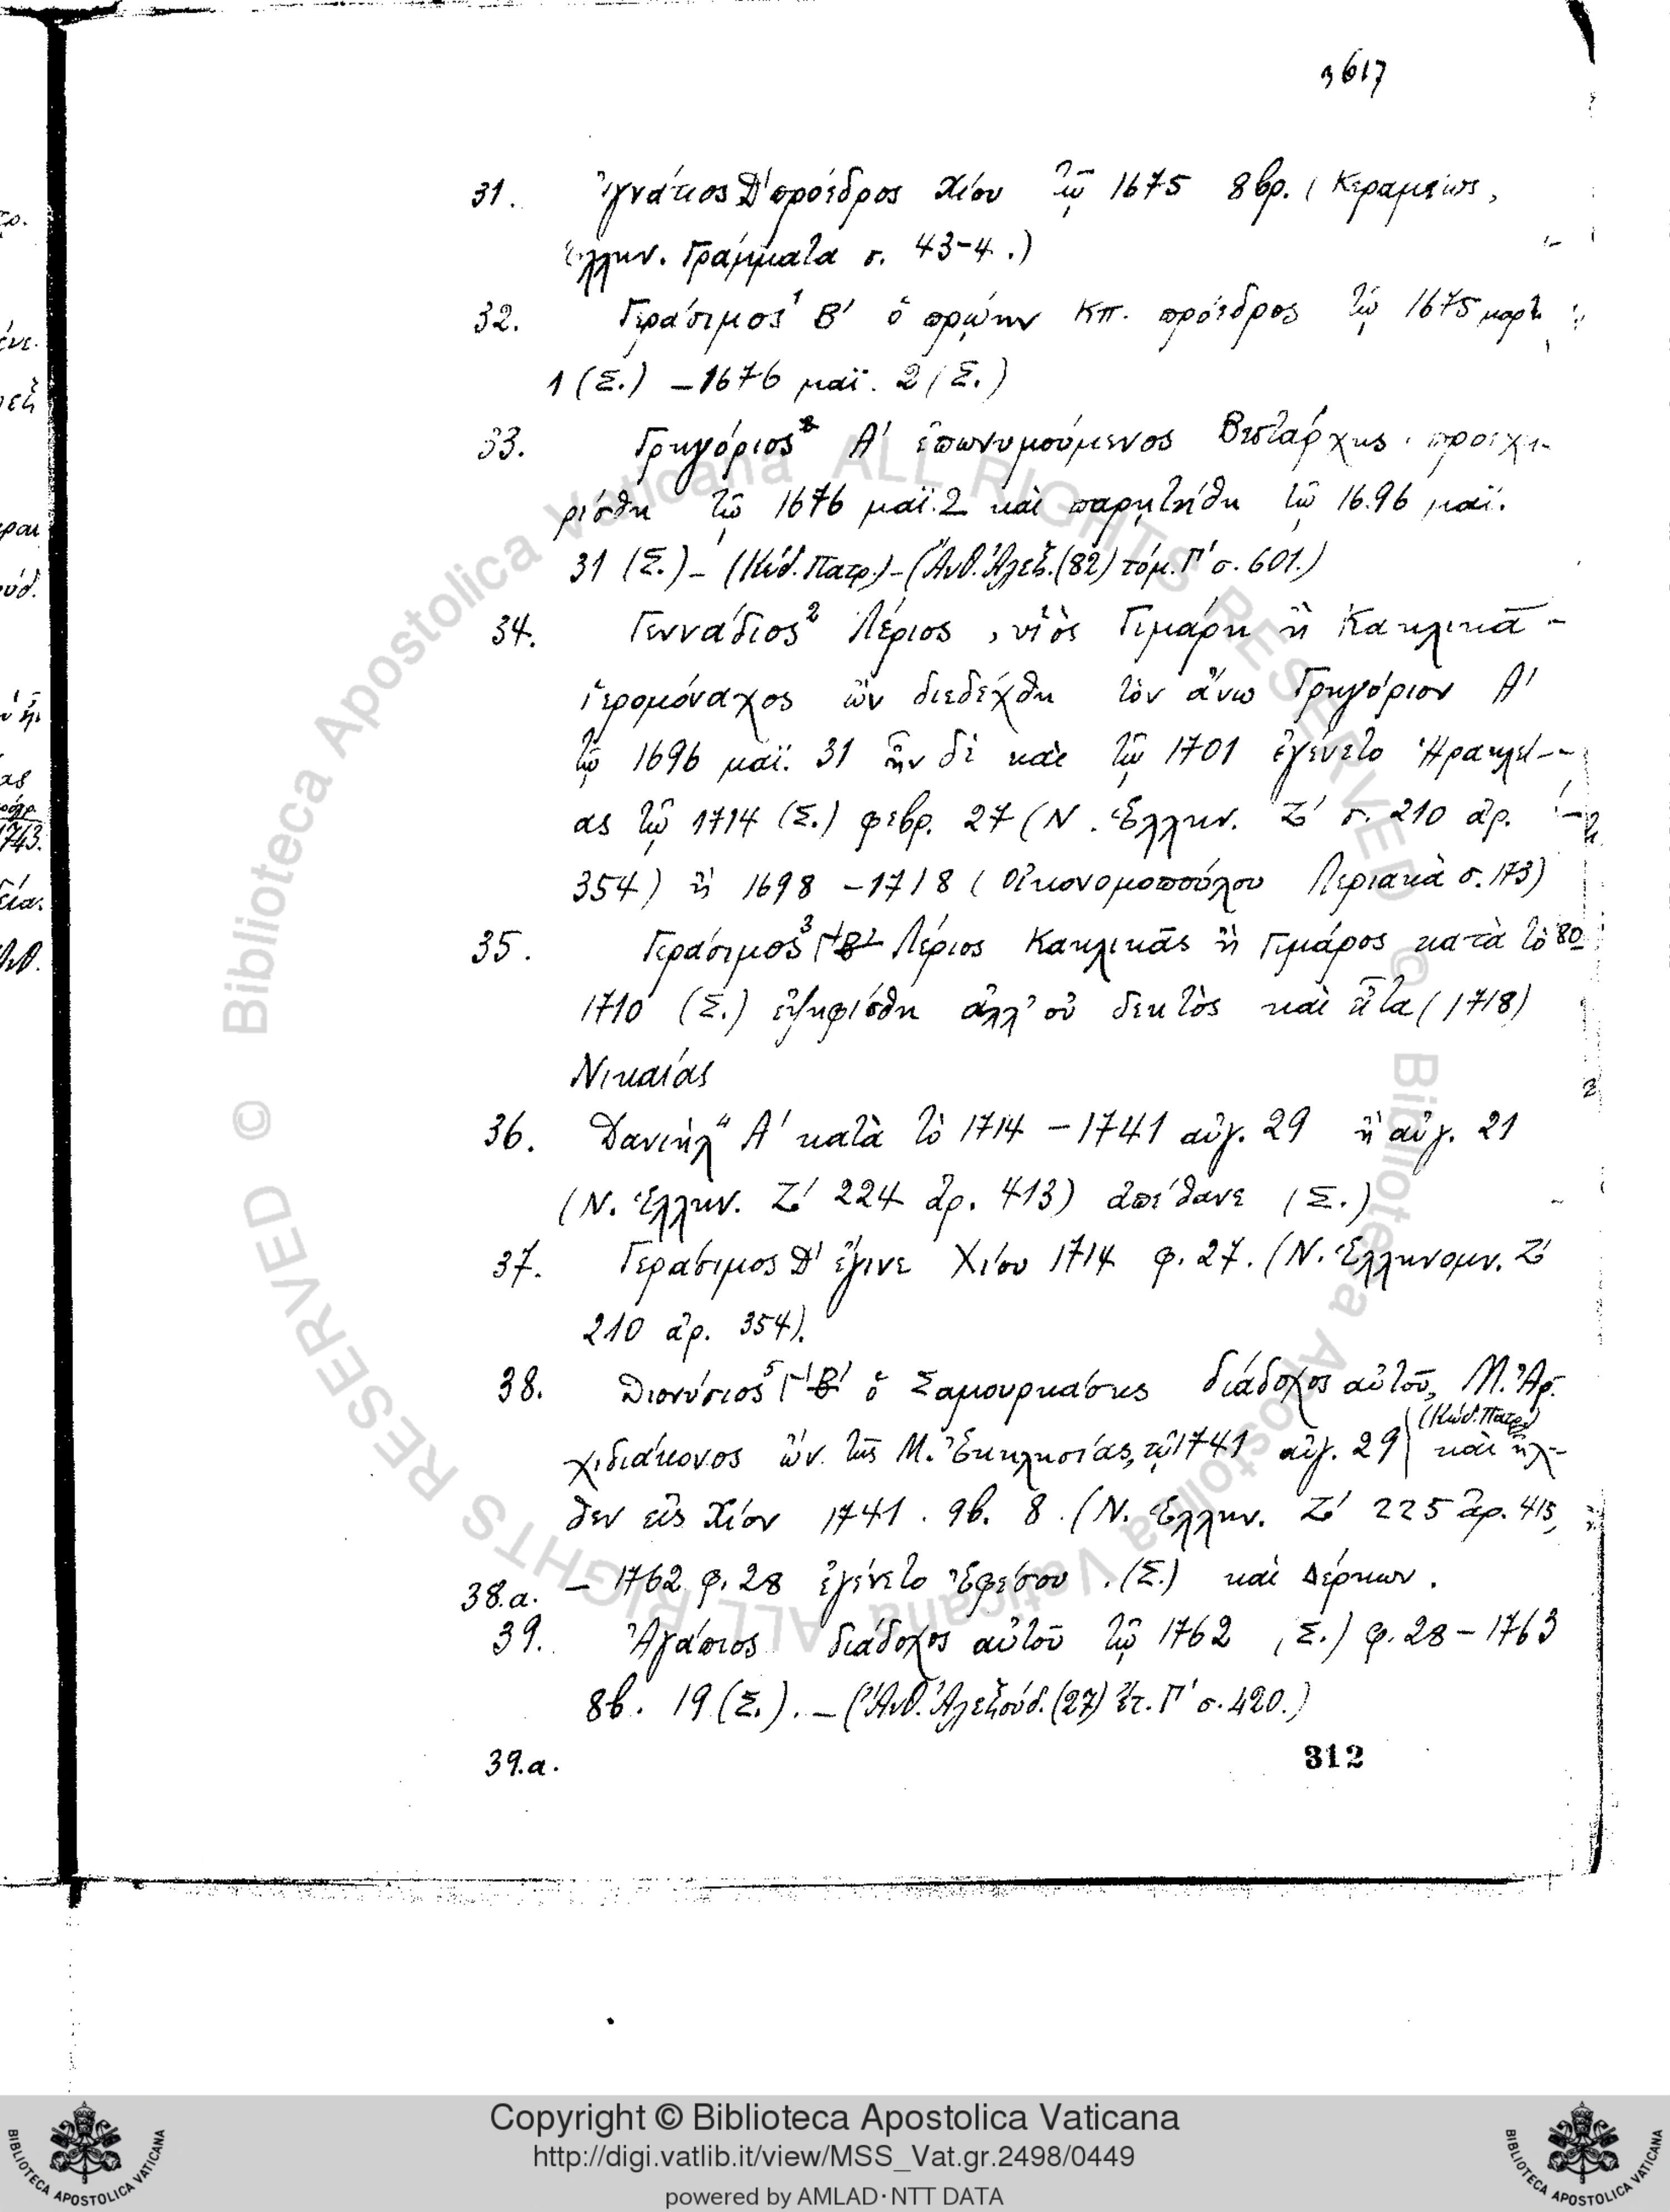 3617
31. Ἰγνάτιος Δ' πρόεδρος Χίου τῷ 1675 8βρ. (Κεραμέως,
Ἑλλην. Γράμματα σ. 43-4.)
32. Γεράσιμος¹ Β' ὁ πρῴην Κπ. πρόεδρος τῷ 1675 μαρτ
1 (Σ.) – 1676 μαΐ. 2 (Σ.)
33. Γρηγόριος Α' ἐπωνυμούμενος Βεστάρχης. προεχει-
ρίσθη τῷ 1676 μαΐ. 2 καὶ παρῃτήθη τῷ 1696 μαΐ.
31 (Σ.) – (Κώδ. Πατρ.) – (Ἀνθ. Ἀλεξ. (82) τόμ. Γ' σ. 601.)
34. Γεννάδιος² Λέριος, υἱὸς Γιμάρη ἢ Κακλικᾶ –
ἱερομόναχος ὢν διεδέχθη τὸν ἄνω Γρηγόριον Α'
τῷ 1696 μαΐ. 31 ἦν δὲ καὶ τῷ 1701 ἐγένετο Ἡρακλεί-
ας τῷ 1714 (Σ.) φεβρ. 27 (Ν. Ἑλλην. Ζ' σ. 210 ἀρ.
354) ἢ 1698 – 1718 (Οἰκονομοπούλου Λεριακὰ σ. 173)
35. Γεράσιμος³ Γ' Β' Λέριος Κακλικᾶς ἢ Γιμάρος κατὰ τὸ 80
1710 (Σ.) ἐψηφίσθη ἀλλ' οὐ δεκτὸς καὶ εἶτα (1718)
Νικαίας
36. Δανιὴλ⁴ Α' κατὰ τὸ 1714 – 1741 αὐγ. 29 ἢ αὐγ. 21
(Ν. Ἑλλην. Ζ' 224 ἀρ. 413) ἀπέθανε (Σ.)
37. Γεράσιμος Δ' ἔγινε Χίου 1714 φ. 27. (Ν. Ἑλληνομν. Ζ'
210 ἀρ. 354).
38. Διονύσιος⁵ Γ' Β' ὁ Σαμουρκάσης διάδοχος αὐτοῦ, Μ. Ἀρ-
χιδιάκονος ὢν τῆς Μ. Ἐκκλησίας, τῷ 1741 αὐγ. 29 (Κώδ. Πατρ.) καὶ ἦλ-
θεν εἰς Χίον 1741. 9β. 8. (Ν. Ἑλλην. Ζ' 225 ἀρ. 415,
38.a. – 1762 φ. 28 ἐγένετο Ἐφέσου. (Σ.) καὶ Δέρκων.
39. Ἀγάπιος διάδοχος αὐτοῦ τῷ 1762 (Σ.) φ. 28 – 1763
8β. 19 (Σ.). – (Ἀνθ. Ἀλεξούδ. (27) ἔτ. Γ' σ. 420.)
39.a.
312
© Biblioteca Apostolica Vaticana ALL RIGHTS RESERVED
© Biblioteca Apostolica Vaticana ALL RIGHTS RESERVED
Copyright © Biblioteca Apostolica Vaticana
http://digi.vatlib.it/view/MSS_Vat.gr.2498/0449
powered by AMLAD·NTT DATA
BIBLIOTECA APOSTOLICA VATICANA
BIBLIOTECA APOSTOLICA VATICANA